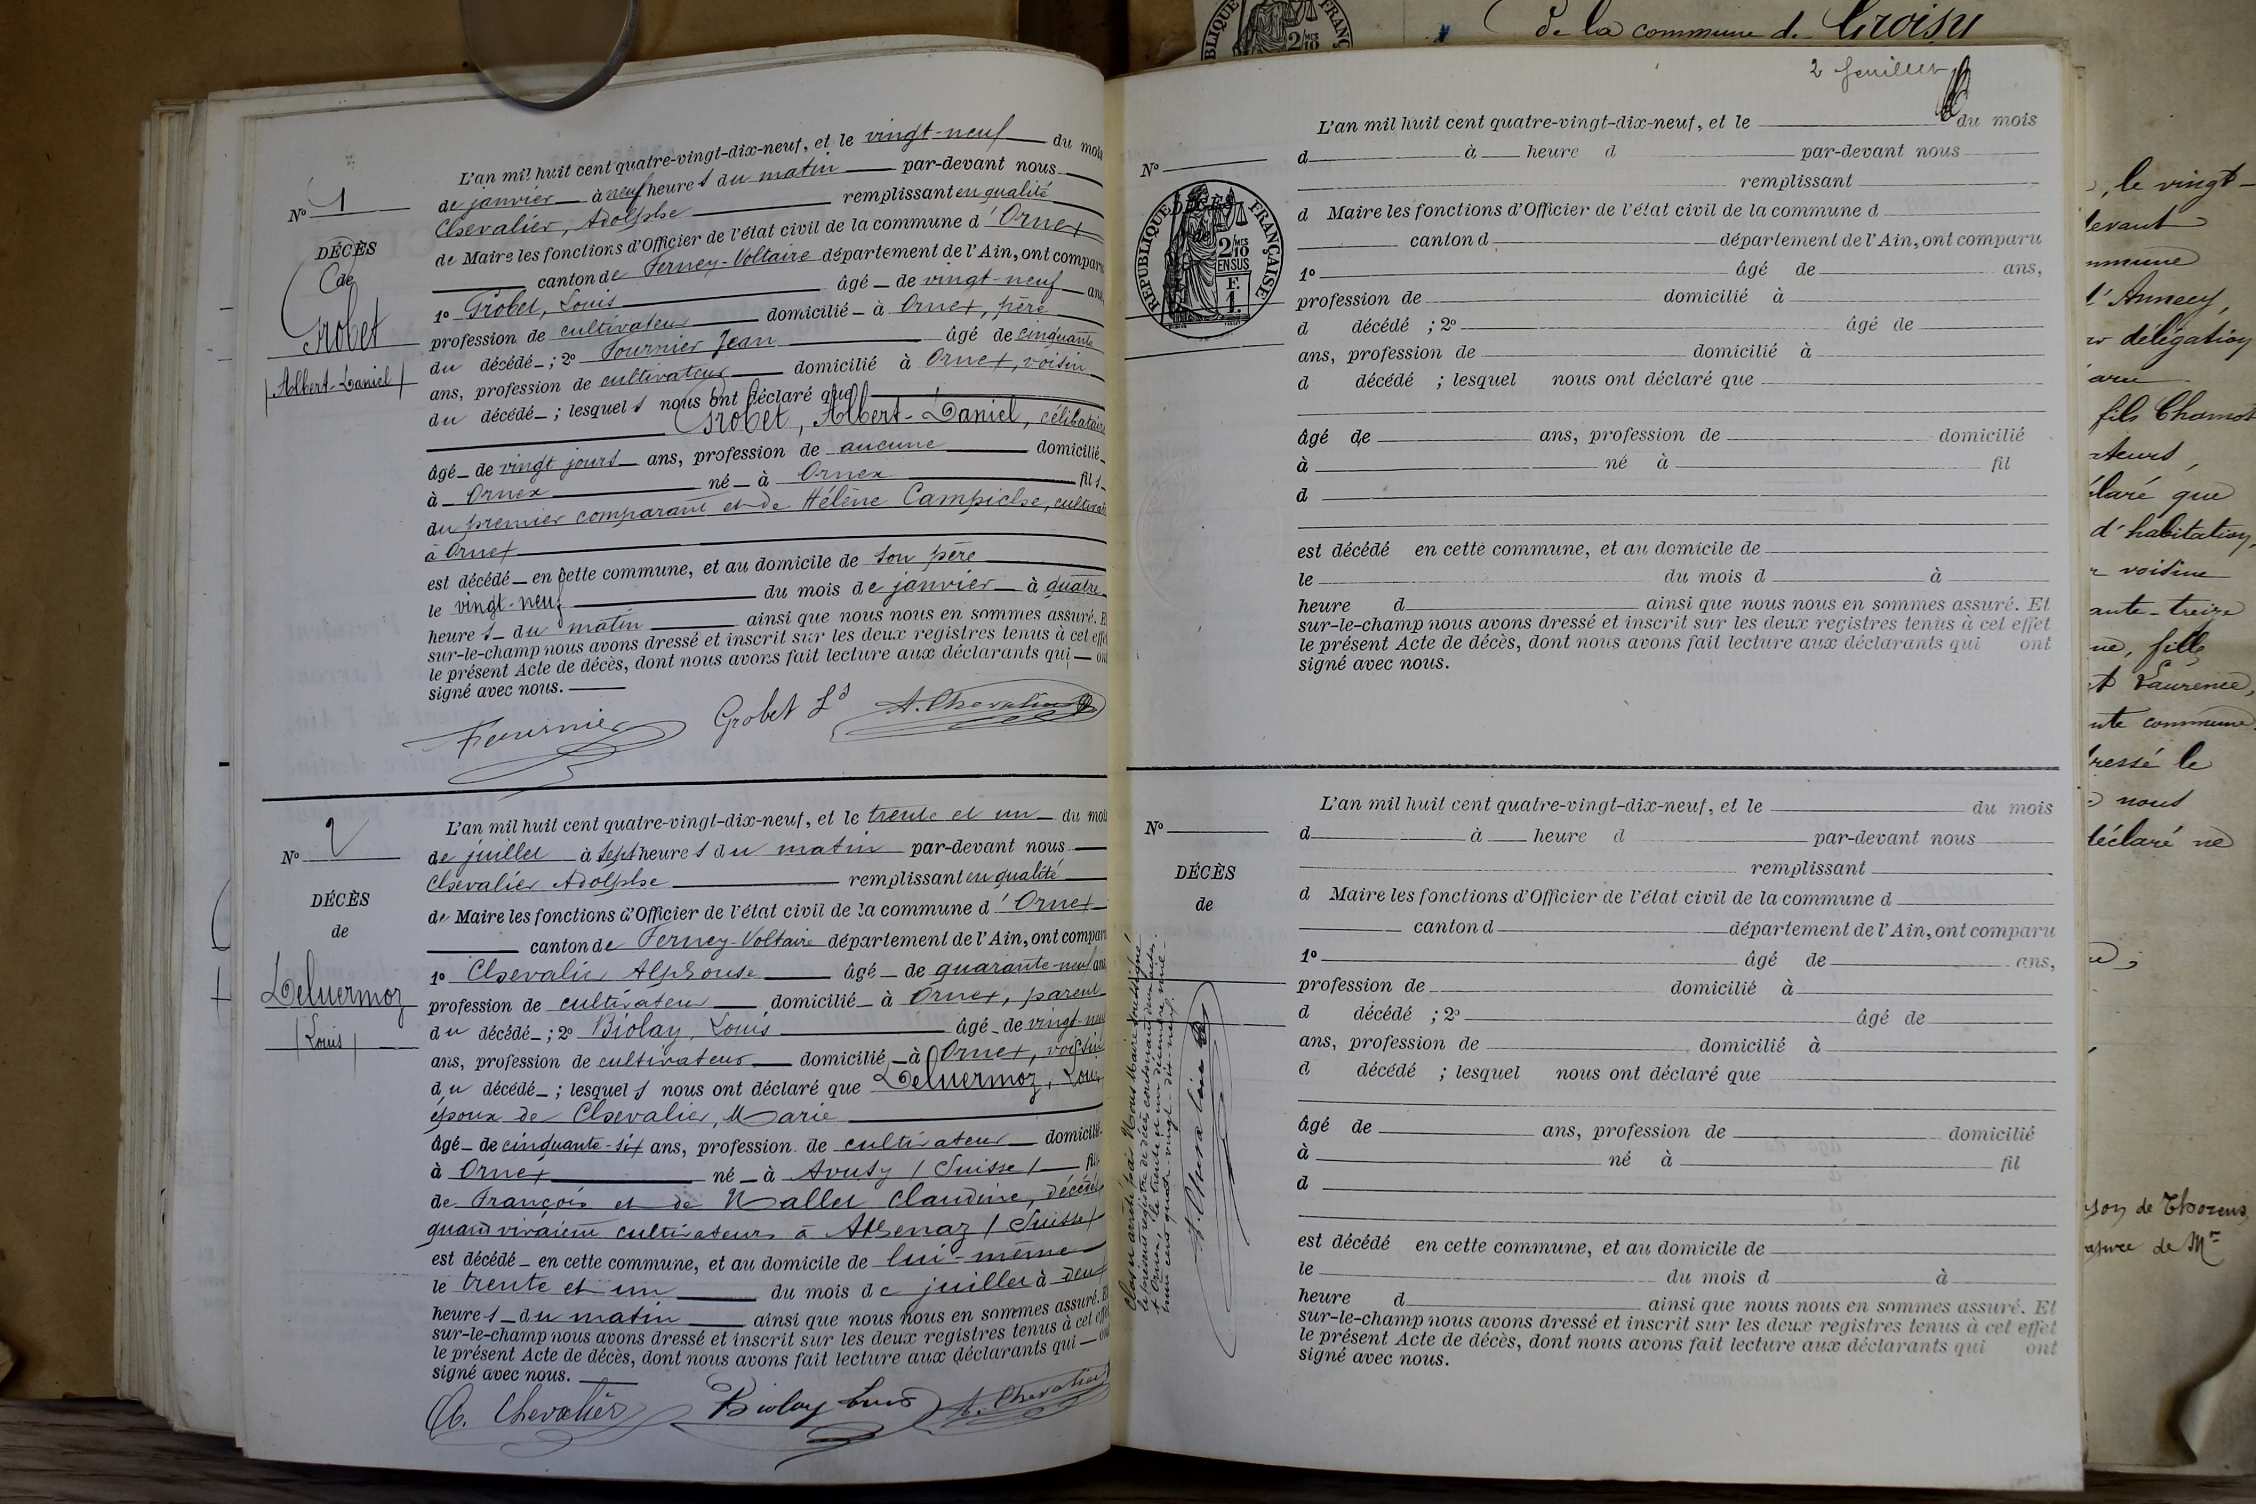 de la commune d. Croisy
2 feuillet
L'an mil huit cent quatre-vingt-dix-neuf, et le vingt-neuf du mois
N° 1
de janvier à neuf heures du matin par-devant nous
Chevalier, Adolphe remplissant en qualité
DÉCÈS
de Maire les fonctions d'Officier de l'état civil de la commune d'Ornex
de
canton de Ferney-Voltaire département de l'Ain, ont comparu
Grobet
1° Grobet, Louis âgé de vingt-neuf ans
Albert-Daniel
profession de cultivateur domicilié à Ornex, père
du décédé ; 2° Fournier Jean âgé de cinquante
ans, profession de cultivateur domicilié à Ornex, voisin
du décédé ; lesquels nous ont déclaré que
Grobet, Albert-Daniel, célibataire
âgé de vingt jours ans, profession de aucune domicilié
à Ornex né à Ornex fils
du premier comparant et de Hélène Campiche, cultivat
à Ornex
est décédé en cette commune, et au domicile de son père
le vingt-neuf du mois de janvier à quatre
heures du matin ainsi que nous nous en sommes assuré. Et
sur-le-champ nous avons dressé et inscrit sur les deux registres tenus à cet effet
le présent Acte de décès, dont nous avons fait lecture aux déclarants qui ont
signé avec nous.
Fournier Grobet Ls A. Chevalier
L'an mil huit cent quatre-vingt-dix-neuf, et le trente et un du mois
N° 2
de juillet à sept heures du matin par-devant nous
Chevalier Adolphe remplissant en qualité
DÉCÈS
de Maire les fonctions d'Officier de l'état civil de la commune d'Ornex
de
canton de Ferney-Voltaire département de l'Ain, ont comparu
Deluermoz
1° Chevalier Alphonse âgé de quarante-neuf ans
Louis
profession de cultivateur domicilié à Ornex, parent
du décédé ; 2° Biolay, Louis âgé de vingt-neuf
ans, profession de cultivateur domicilié à Ornex, voisin
du décédé ; lesquels nous ont déclaré que Deluermoz, Louis
époux de Chevalier, Marie
âgé de cinquante-six ans, profession de cultivateur domicilié
à Ornex né à Avusy (Suisse) fils
de François et de Mallet Claudine, décédés
quand vivaient cultivateurs à Athenaz (Suisse)
est décédé en cette commune, et au domicile de lui-même
le trente et un du mois de juillet à deux
heures du matin ainsi que nous nous en sommes assuré. Et
sur-le-champ nous avons dressé et inscrit sur les deux registres tenus à cet effet
le présent Acte de décès, dont nous avons fait lecture aux déclarants qui ont
signé avec nous.
A. Chevalier Biolay Louis A. Chevalier
L'an mil huit cent quatre-vingt-dix-neuf, et le du mois
N°
d à heure d par-devant nous
remplissant
RÉPUBLIQUE FRANÇAISE
DÉCÈS
de
2/10 MES
EN SUS
F.
1.
d Maire les fonctions d'Officier de l'état civil de la commune d
canton d département de l'Ain, ont comparu
1° âgé de ans,
profession de domicilié à
d décédé ; 2° âgé de
ans, profession de domicilié à
d décédé ; lesquel nous ont déclaré que
âgé de ans, profession de domicilié
à né à fil
d
est décédé en cette commune, et au domicile de
le du mois d à
heure d ainsi que nous nous en sommes assuré. Et
sur-le-champ nous avons dressé et inscrit sur les deux registres tenus à cet effet
le présent Acte de décès, dont nous avons fait lecture aux déclarants qui ont
signé avec nous.
L'an mil huit cent quatre-vingt-dix-neuf, et le du mois
N°
d à heure d par-devant nous
remplissant
DÉCÈS
de
d Maire les fonctions d'Officier de l'état civil de la commune d
canton d département de l'Ain, ont comparu
1° âgé de ans,
profession de domicilié à
d décédé ; 2° âgé de
ans, profession de domicilié à
d décédé ; lesquel nous ont déclaré que
âgé de ans, profession de domicilié
à né à fil
d
est décédé en cette commune, et au domicile de
le du mois d à
heure d ainsi que nous nous en sommes assuré. Et
sur-le-champ nous avons dressé et inscrit sur les deux registres tenus à cet effet
le présent Acte de décès, dont nous avons fait lecture aux déclarants qui ont
signé avec nous.
Clos et arrêté par Nous Maire soussigné,
le présent registre de décès contenant deux actes.
A Ornex, le trente et un décembre mil
huit cent quatre-vingt-dix-neuf.
A. Chevalier
, le vingt-
devant
mmune
d'Annecy,
délégation
fils Chamot
ateurs,
claré que
d'habitation,
voisine
ante-treize
ne, fille
et Laurence,
nte commune
dressé le
nous
déclaré ne
son de Thorens
de Mr